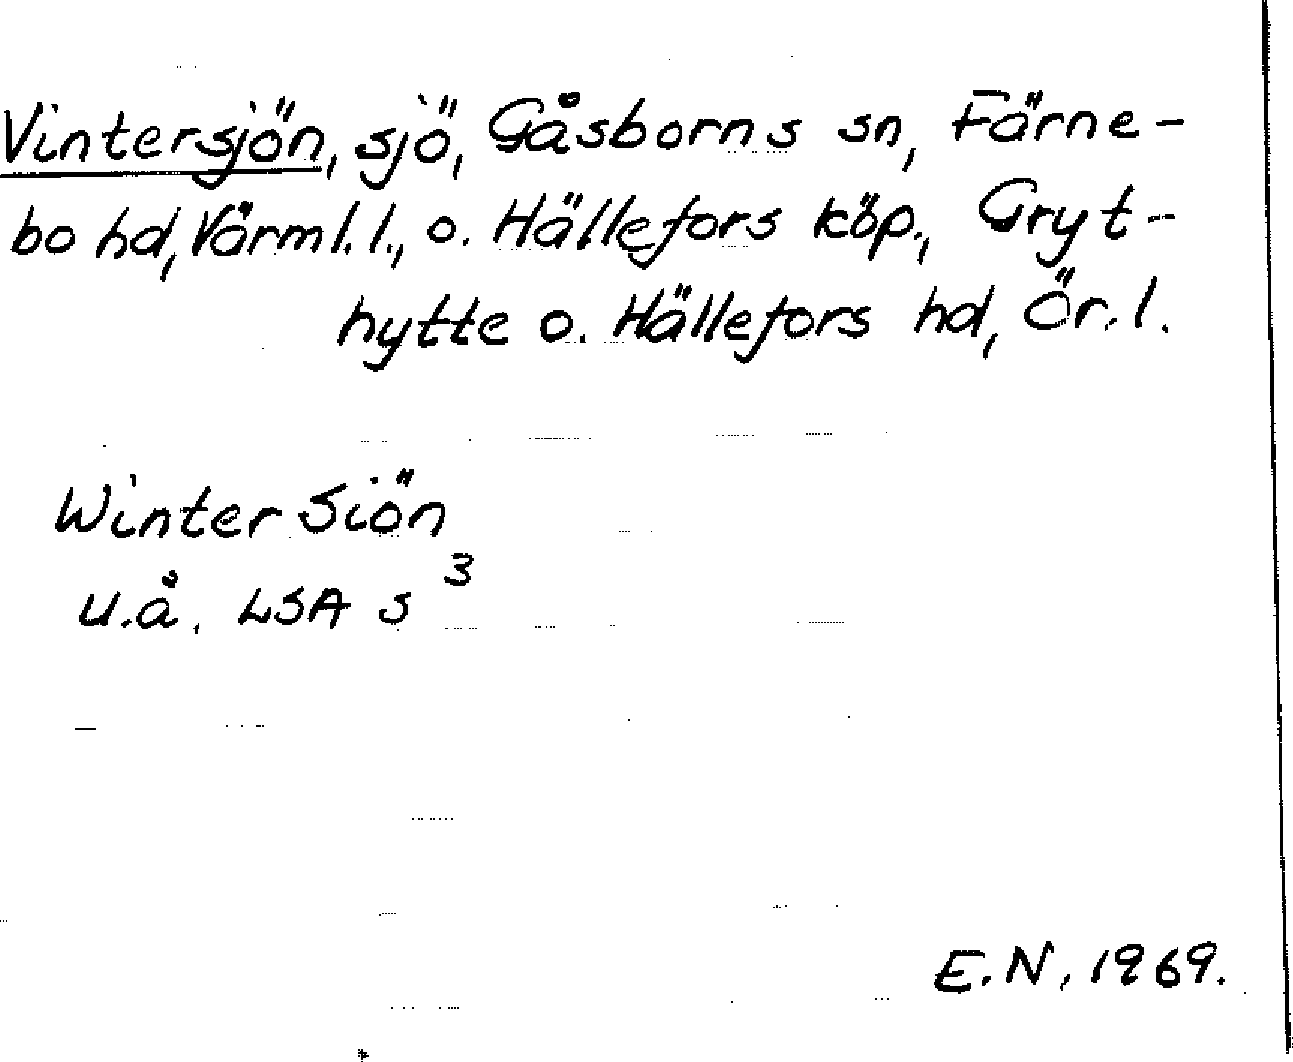 Vintersjön, sjö, Gåsborns sn, Färne-
bo hd, Värml. l., o. Hällefors köp., Gryt-
hytte o. Hällefors hd, Ör. l.
Winter Siön
u.å. LSA s³
E.N. 1969.